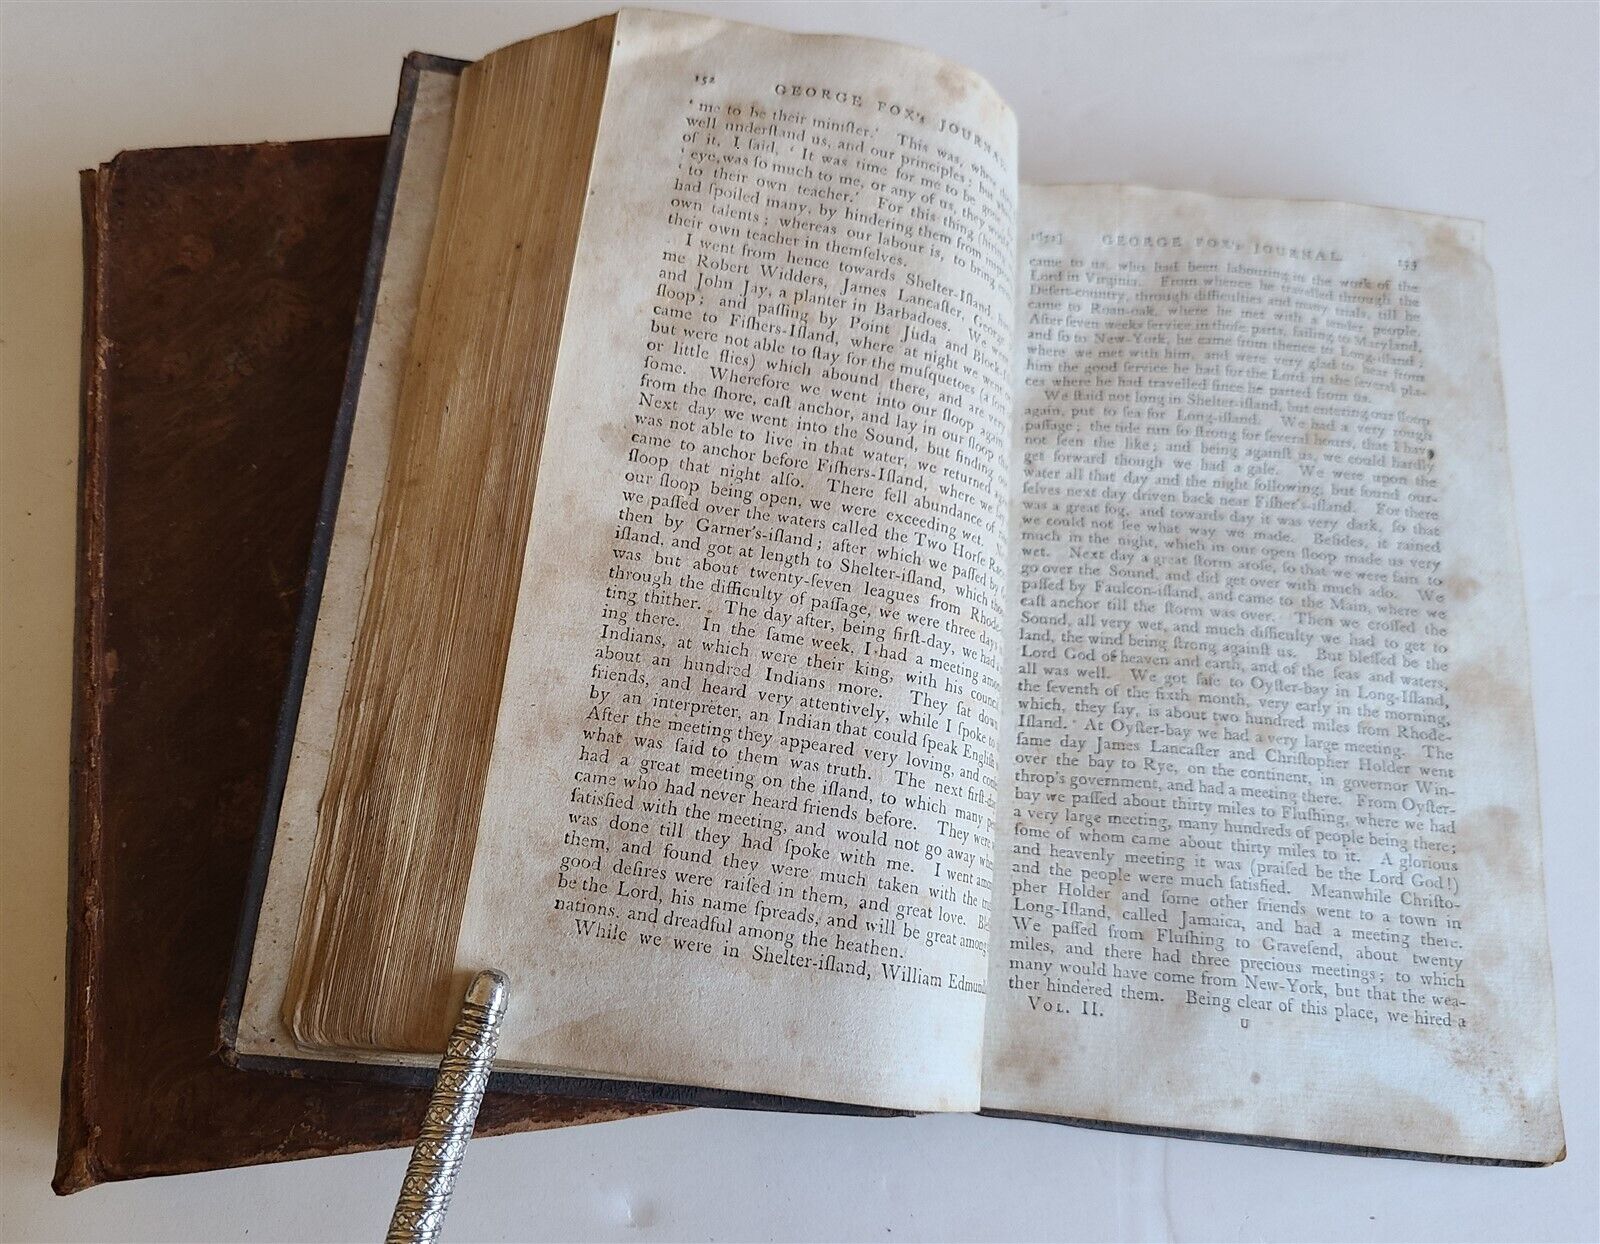 152 GEORGE FOX's JOURNAL
‘ me to be their miniſter.’ This was, where
well underſtand us, and our principles; but
of it, I ſaid, ‘ It was time for me to be gone
‘ eye, was ſo much to me, or any of us, they would
‘ to their own teacher.’ For this thing
had ſpoiled many, by hindering them from
own talents; whereas our labour is, to bring
their own teacher in themſelves.
I went from hence towards Shelter-Iſland,
me Robert Widders, James Lancaſter, George
and John Jay, a planter in Barbadoes. We
ſloop; and paſſing by Point Juda and Block
came to Fiſhers-Iſland, where at night we went
but were not able to ſtay for the muſquetoes (a ſort
or little flies) which abound there, and are very
ſome. Wherefore we went into our ſloop again
from the ſhore, caſt anchor, and lay in our ſloop
Next day we went into the Sound, but finding our
was not able to live in that water, we returned again
came to anchor before Fiſhers-Iſland, where we
ſloop that night alſo. There fell abundance of
our ſloop being open, we were exceeding wet.
we paſſed over the waters called the Two Horſe Races
then by Garner's-iſland; after which we paſſed by
iſland, and got at length to Shelter-iſland, which
was but about twenty-ſeven leagues from Rhode-
through the difficulty of paſſage, we were three days
ting thither. The day after, being firſt-day, we had a
ing there. In the ſame week, I had a meeting among
Indians, at which were their king, with his council
about an hundred Indians more. They ſat down
friends, and heard very attentively, while I ſpoke to
by an interpreter, an Indian that could ſpeak Engliſh
After the meeting they appeared very loving, and
what was ſaid to them was truth. The next firſt-day
had a great meeting on the iſland, to which many
came who had never heard friends before. They were
ſatisfied with the meeting, and would not go away
was done till they had ſpoke with me. I went
them, and found they were much taken with the
good deſires were raiſed in them, and great love.
be the Lord, his name ſpreads, and will be great among
nations, and dreadful among the heathen.
While we were in Shelter-iſland, William
1672] GEORGE FOX's JOURNAL. 153
came to us, who had been labouring in the work of the
Lord in Virginia. From whence he travelled through the
Deſert-country, through difficulties and many trials, till he
came to Roan-oak, where he met with a tender people.
After ſeven weeks ſervice in thoſe parts, ſailing to Maryland,
and ſo to New-York, he came from thence to Long-iſland;
where we met with him, and were very glad to hear from
him the good ſervice he had for the Lord in the ſeveral pla-
ces where he had travelled ſince he parted from us.
We ſtaid not long in Shelter-iſland, but entering our ſloop
again, put to ſea for Long-iſland. We had a very rough
paſſage; the tide run ſo ſtrong for ſeveral hours, that I have
not ſeen the like; and being againſt us, we could hardly
get forward though we had a gale. We were upon the
water all that day and the night following; but found our-
ſelves next day driven back near Fiſher's-iſland. For there
was a great fog, and towards day it was very dark, ſo that
we could not ſee what way we made. Beſides, it rained
much in the night, which in our open ſloop made us very
wet. Next day a great ſtorm aroſe, ſo that we were fain to
go over the Sound, and did get over with much ado. We
paſſed by Faulcon-iſland, and came to the Main, where we
caſt anchor till the ſtorm was over. Then we croſſed the
Sound, all very wet, and much difficulty we had to get to
land, the wind being ſtrong againſt us. But bleſſed be the
Lord God of heaven and earth, and of the ſeas and waters,
all was well. We got ſafe to Oyſter-bay in Long-Iſland,
the ſeventh of the ſixth month, very early in the morning,
which, they ſay, is about two hundred miles from Rhode-
Iſland. At Oyſter-bay we had a very large meeting. The
ſame day James Lancaſter and Chriſtopher Holder went
over the bay to Rye, on the continent, in governor Win-
throp's government, and had a meeting there. From Oyſter-
bay we paſſed about thirty miles to Fluſhing, where we had
a very large meeting, many hundreds of people being there;
ſome of whom came about thirty miles to it. A glorious
and heavenly meeting it was (praiſed be the Lord God!)
and the people were much ſatisfied. Meanwhile Chriſto-
pher Holder and ſome other friends went to a town in
Long-Iſland, called Jamaica, and had a meeting there.
We paſſed from Fluſhing to Graveſend, about twenty
miles, and there had three precious meetings; to which
many would have come from New-York, but that the wea-
ther hindered them. Being clear of this place, we hired a
VOL. II. U